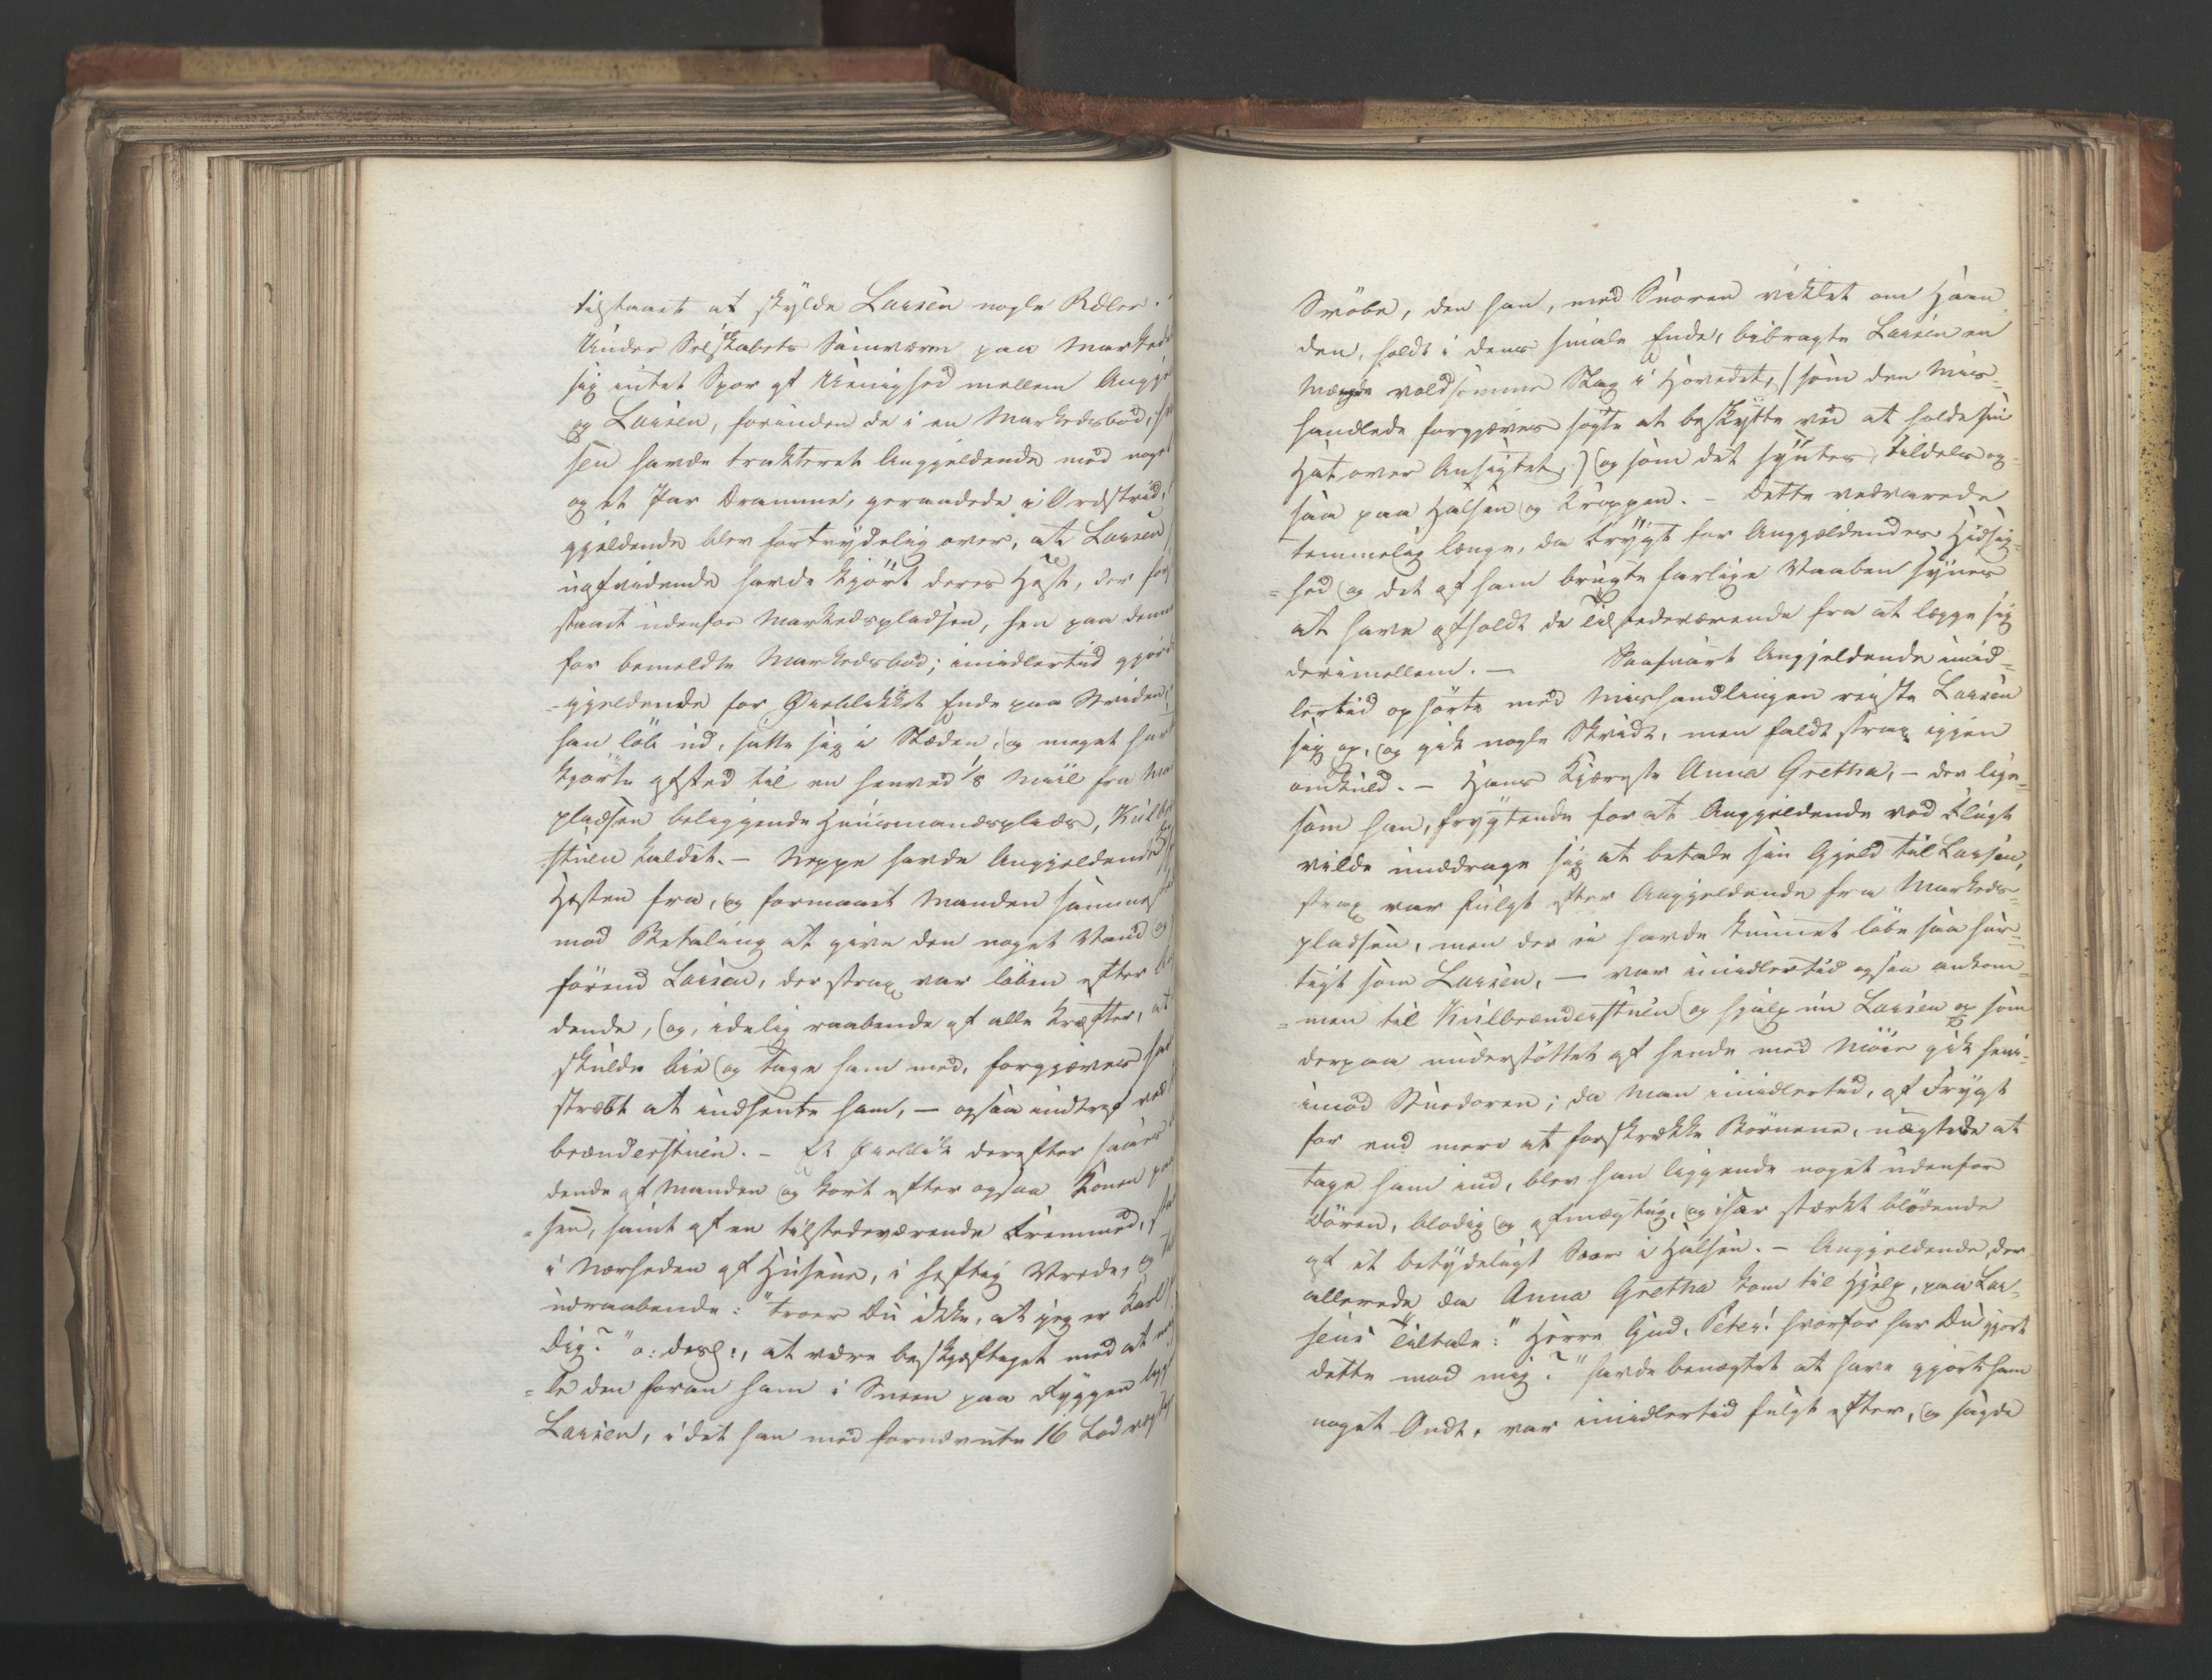 tilstaaet at skylde Larsen nogle Rdler.
Under Selskabets Samværen paa Markeds
sig intet Spor af Uenighed mellem Anggjel
og Larsen, forinden de i en Markedsbod, h
sen havde trakteret Anggjeldende med noget
og et Par Dramme, geraadede i Ordstrid,
gjeldende blev fortrydelig over, at Larsen
uafvidende havde kjørt deres Hest, der for
staaet udenfor Markedspladsen, hen paa denne
for bemeldte Markedsbod; imidlertid gjorde
-gjeldende for Øieblikket Ende paa Striden,
han løb ud, satte sig i Slæden, og meget hur
kjørte afsted til en henved 1/8 Miil fra Ma
pladsen beliggende Huusmandsplads, Kulbr
stuen kaldet. – Neppe havde Anggjeldende
Hesten fra, og formaaet Manden sammes
mod Betaling at give den noget Vand og
førend Larsen, der strax var løben efter An
dende, og, idelig raabende af alle Kræfter, at
skulde bie og tage ham med, forgjæves hav
stræbt at indhente ham, – ogsaa indtraf ved
brænderstuen. – Et Øieblik derefter saaes
dende af Manden og kort efter ogsaa Konen paa
=sen, samt af en tilstedeværende Fremmed,
i Nærheden af Husene, i heftig Vrede, og
udraabende: "troer Du ikke, at jeg er Karl
Dig?" o: desl:, at være beskjæftiget med at
=le den foran ham i Sneen paa Ryggen
Larsen, i det han med fornævnte 16 Lod
Svøbe, den han, med Snoren viklet om Haan
den, holdt i dens smale Ende, bibragte Larsen en
Mængde voldsomme Slag i Hovedet, (som den Mis=
handlede forgjæves søgte at beskytte ved at holde sin
Hat over Ansigtet,) og som det syntes, tildels og=
saa paa Halsen og Kroppen. – Dette vedvarede
temmelig længe, da Frygt for Anggjeldendes Hidsig=
=hed og det af ham brugte farlige Vaaben synes
at have afholdt de Tilstedeværende fra at lægge sig
derimellem. – Saasnart Angjeldende imid=
lertid ophørte med Mishandlingen reiste Larsen
sig op, og gik nogle Skridt, men faldt strax igjen
omkuld. – Hans Kjæreste Anna Gretha, – der lige=
som han, frygtende for at Anggjeldende ved Flugt
vilde unddrage sig at betale sin Gjeld til Larsen,
strax var fulgt efter Anggjeldende fra Markeds=
pladsen, men der ei havde kunnet løbe saa hur=
tigt som Larsen, – var imidlertid ogsaa ankom=
=men til Kulbrænderstuen og hjalp nu Larsen op som
derpaa understøttet af hende med Møie gik hen=
imod Stuedøren; da Man imidlertid, af Frygt
for end mere at forskrække Børnene, nægtede at
tage ham ind, blev han liggende noget udenfor
Døren, blodig og afmægtig, og især stærkt blødende
af et betydeligt Saar i Halsen. – Angjeldende, der
allerede da Anna Gretha kom til Hjelp, paa Lar=
sens Tiltale: "Herre Gud, Peter! hvorfor har Du gjort
dette mod mig?" havde benægtet at have gjort ham
noget Ondt, var imidlertid fulgt efter, og sagde